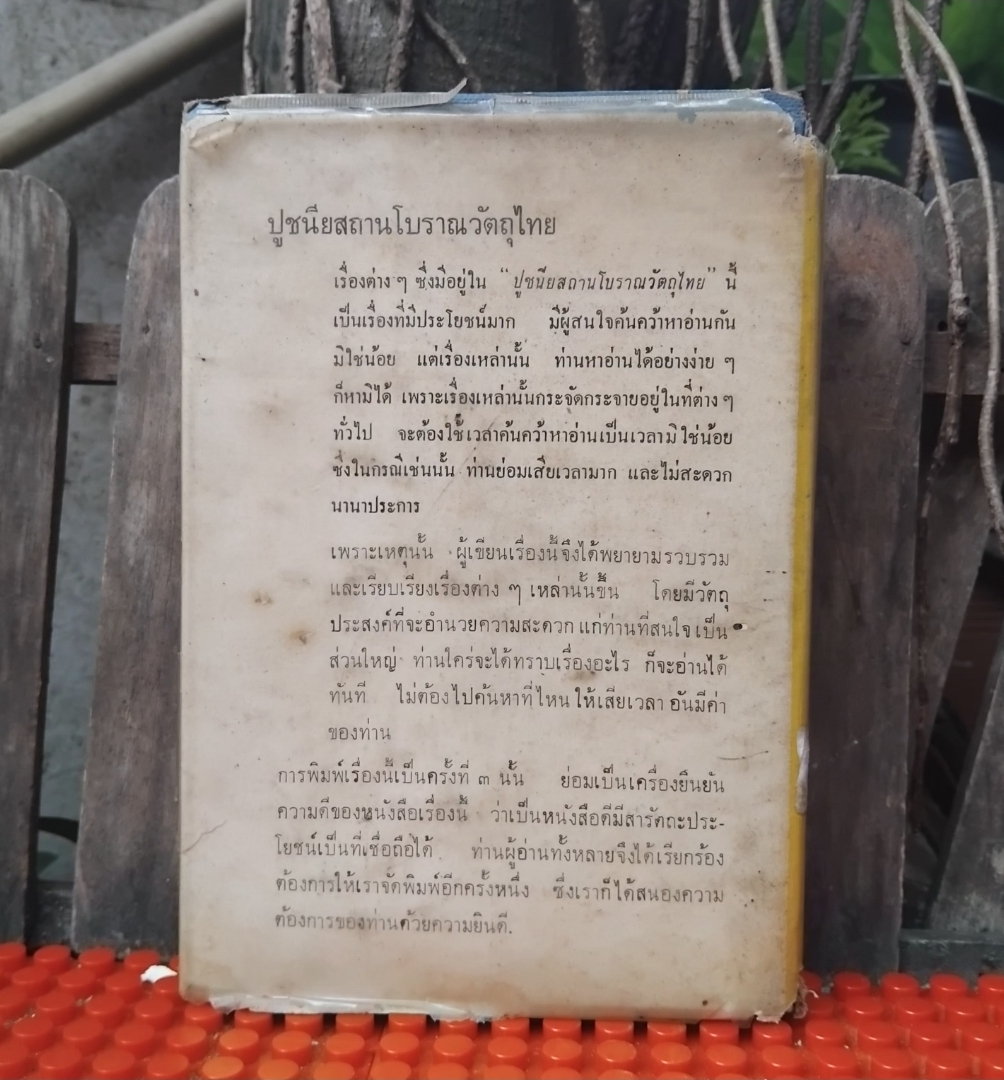 ปูชนียสถานโบราณวัตถุไทย
เรื่องต่าง ๆ ซึ่งมีอยู่ใน “ปูชนียสถานโบราณวัตถุไทย” นี้
เป็นเรื่องที่มีประโยชน์มาก มีผู้สนใจค้นคว้าหาอ่านกัน
มิใช่น้อย แต่เรื่องเหล่านั้น ท่านหาอ่านได้อย่างง่าย ๆ
ก็หามิได้ เพราะเรื่องเหล่านั้นกระจัดกระจายอยู่ในที่ต่าง ๆ
ทั่วไป จะต้องใช้เวลาค้นคว้าหาอ่านเป็นเวลามิใช่น้อย
ซึ่งในกรณีเช่นนั้น ท่านย่อมเสียเวลามาก และไม่สะดวก
นานาประการ
เพราะเหตุนั้น ผู้เขียนเรื่องนี้จึงได้พยายามรวบรวม
และเรียบเรียงเรื่องต่าง ๆ เหล่านั้นขึ้น โดยมีวัตถุ
ประสงค์ที่จะอำนวยความสะดวกแก่ท่านที่สนใจเป็น
ส่วนใหญ่ ท่านใคร่จะได้ทราบเรื่องอะไร ก็จะอ่านได้
ทันที ไม่ต้องไปค้นหาที่ไหนให้เสียเวลาอันมีค่า
ของท่าน
การพิมพ์เรื่องนี้เป็นครั้งที่ ๓ นั้น ย่อมเป็นเครื่องยืนยัน
ความดีของหนังสือเรื่องนี้ ว่าเป็นหนังสือดีมีสารัตถะประ-
โยชน์เป็นที่เชื่อถือได้ ท่านผู้อ่านทั้งหลายจึงได้เรียกร้อง
ต้องการให้เราจัดพิมพ์อีกครั้งหนึ่ง ซึ่งเราก็ได้สนองความ
ต้องการของท่านด้วยความยินดี.